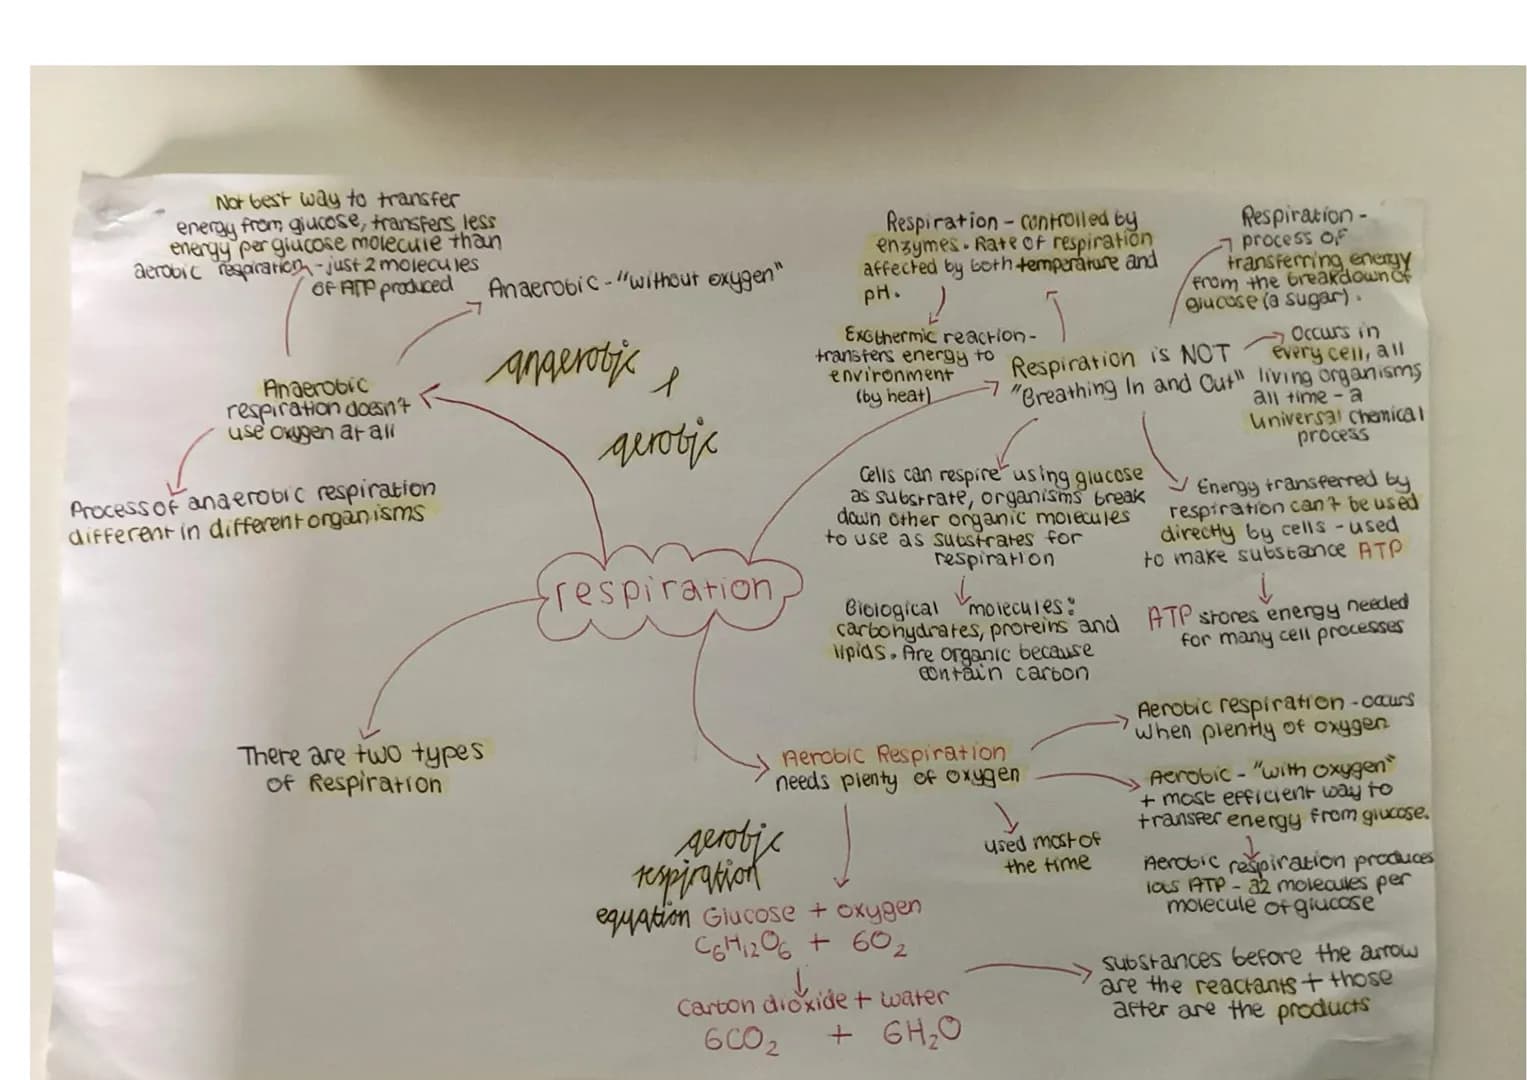 Not best way to transfer
energy from glucose, transfers less
energy per glucose molecule than
aerobic respiration - just 2 molecules
of ATP produced
Anaerobic - "without oxygen"
Anaerobic
respiration doesn't
use oxygen at all
Process of anaerobic respiration
different in different organisms
anaerobic
+
aerobic
respiration
There are two types
of Respiration
Respiration - controlled by
enzymes. Rate of respiration
affected by both temperature and
pH.
Exothermic reaction-
transfers energy to
environment
(by heat)
Respiration is NOT
"Breathing In and Out"
Respiration -
process of
transferring energy
from the breakdown of
glucose (a sugar).
Occurs in
every cell, all
living organisms
all time - a
universal chemical
process
Cells can respire using glucose
as substrate, organisms break
down other organic molecules
to use as substrates for
respiration
Biological molecules:
carbohydrates, proteins and
lipids. Are organic because
contain carbon
Energy transferred by
respiration can't be used
directly by cells - used
to make substance ATP
ATP stores energy needed
for many cell processes
Aerobic Respiration
needs plenty of oxygen
Aerobic respiration - occurs
when plently of oxygen
Aerobic - "with oxygen"
+ most efficient way to
transfer energy from glucose.
Aerobic respiration produces
lots ATP - 32 molecules per
molecule of glucose
used most of
the time
aerobic
respiration
equation
Glucose + oxygen
C6H12O6 + 6O2
Carbon dioxide + water
6CO2 + 6H2O
substances before the arrow
are the reactants + those
after are the products